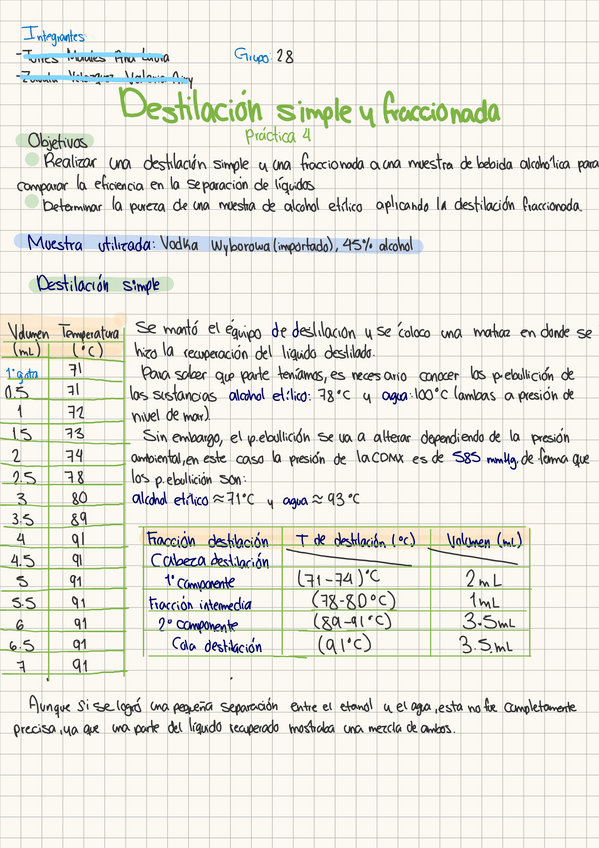 Integrantes:
Grupo: 28
Destilación simple y fraccionada
Práctica 4
Objetivos
Realizar una destilación simple y una fraccionada a una muestra de bebida alcohólica para
comparar la eficiencia en la separación de líquidos
Determinar la pureza de una muestra de alcohol etílico aplicando la destilación fraccionada.
Muestra utilizada: Vodka Wyborowa (importado), 45% alcohol
Destilación simple
Volumen (mL) Temperatura (°C)
1° gota 71
0.5 71
1 72
1.5 73
2 74
2.5 78
3 80
3.5 89
4 91
4.5 91
5 91
5.5 91
6 91
6.5 91
7 91
Se montó el équipo de destilación y se coloco una matraz en donde se
hizo la recuperación del liquido destilado.
Para saber que parte teníamos, es necesario conocer los p.ebullición de
las sustancias alcohol etílico: 78°C y agua: 100°C (ambas a presión de
nivel de mar).
Sin embargo, el p.ebullición se va a alterar dependiendo de la presión
ambiental, en este caso la presión de la CDMX es de 585 mmHg, de forma que
los p.ebullición son:
alcohol etílico ≈ 71°C y agua ≈ 93°C
Fracción destilación T de destilación (°C) Volumen (mL)
Cabeza destilación
1° componente (71-74)°C 2mL
Fracción intermedia (78-80°C) 1mL
2° componente (89-91°C) 3.5mL
Cola destilación (91°C) 3.5mL
Aunque si se logró una pequeña separación entre el etanol y el agua, esta no fue completamente
precisa, ya que una parte del líquido recuperado mostraba una mezcla de ambos.